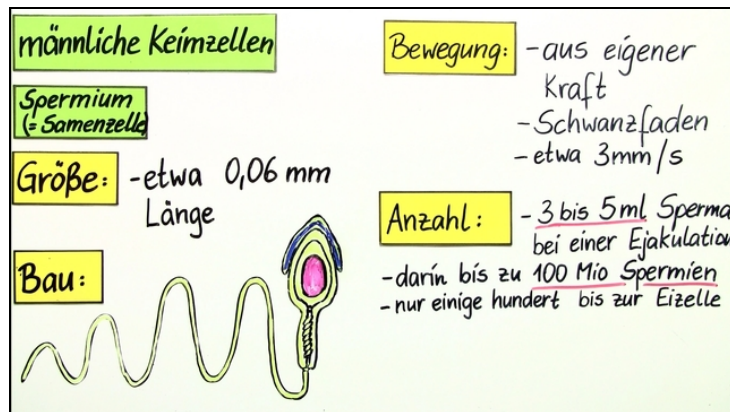 männliche Keimzellen
Spermium
(= Samenzelle)
Größe: -etwa 0,06 mm
Länge
Bau:
Bewegung: -aus eigener
Kraft
-Schwanzfaden
-etwa 3mm/s
Anzahl: -3 bis 5ml Sperma
bei einer Ejakulation
-darin bis zu 100 Mio Spermien
-nur einige hundert bis zur Eizelle